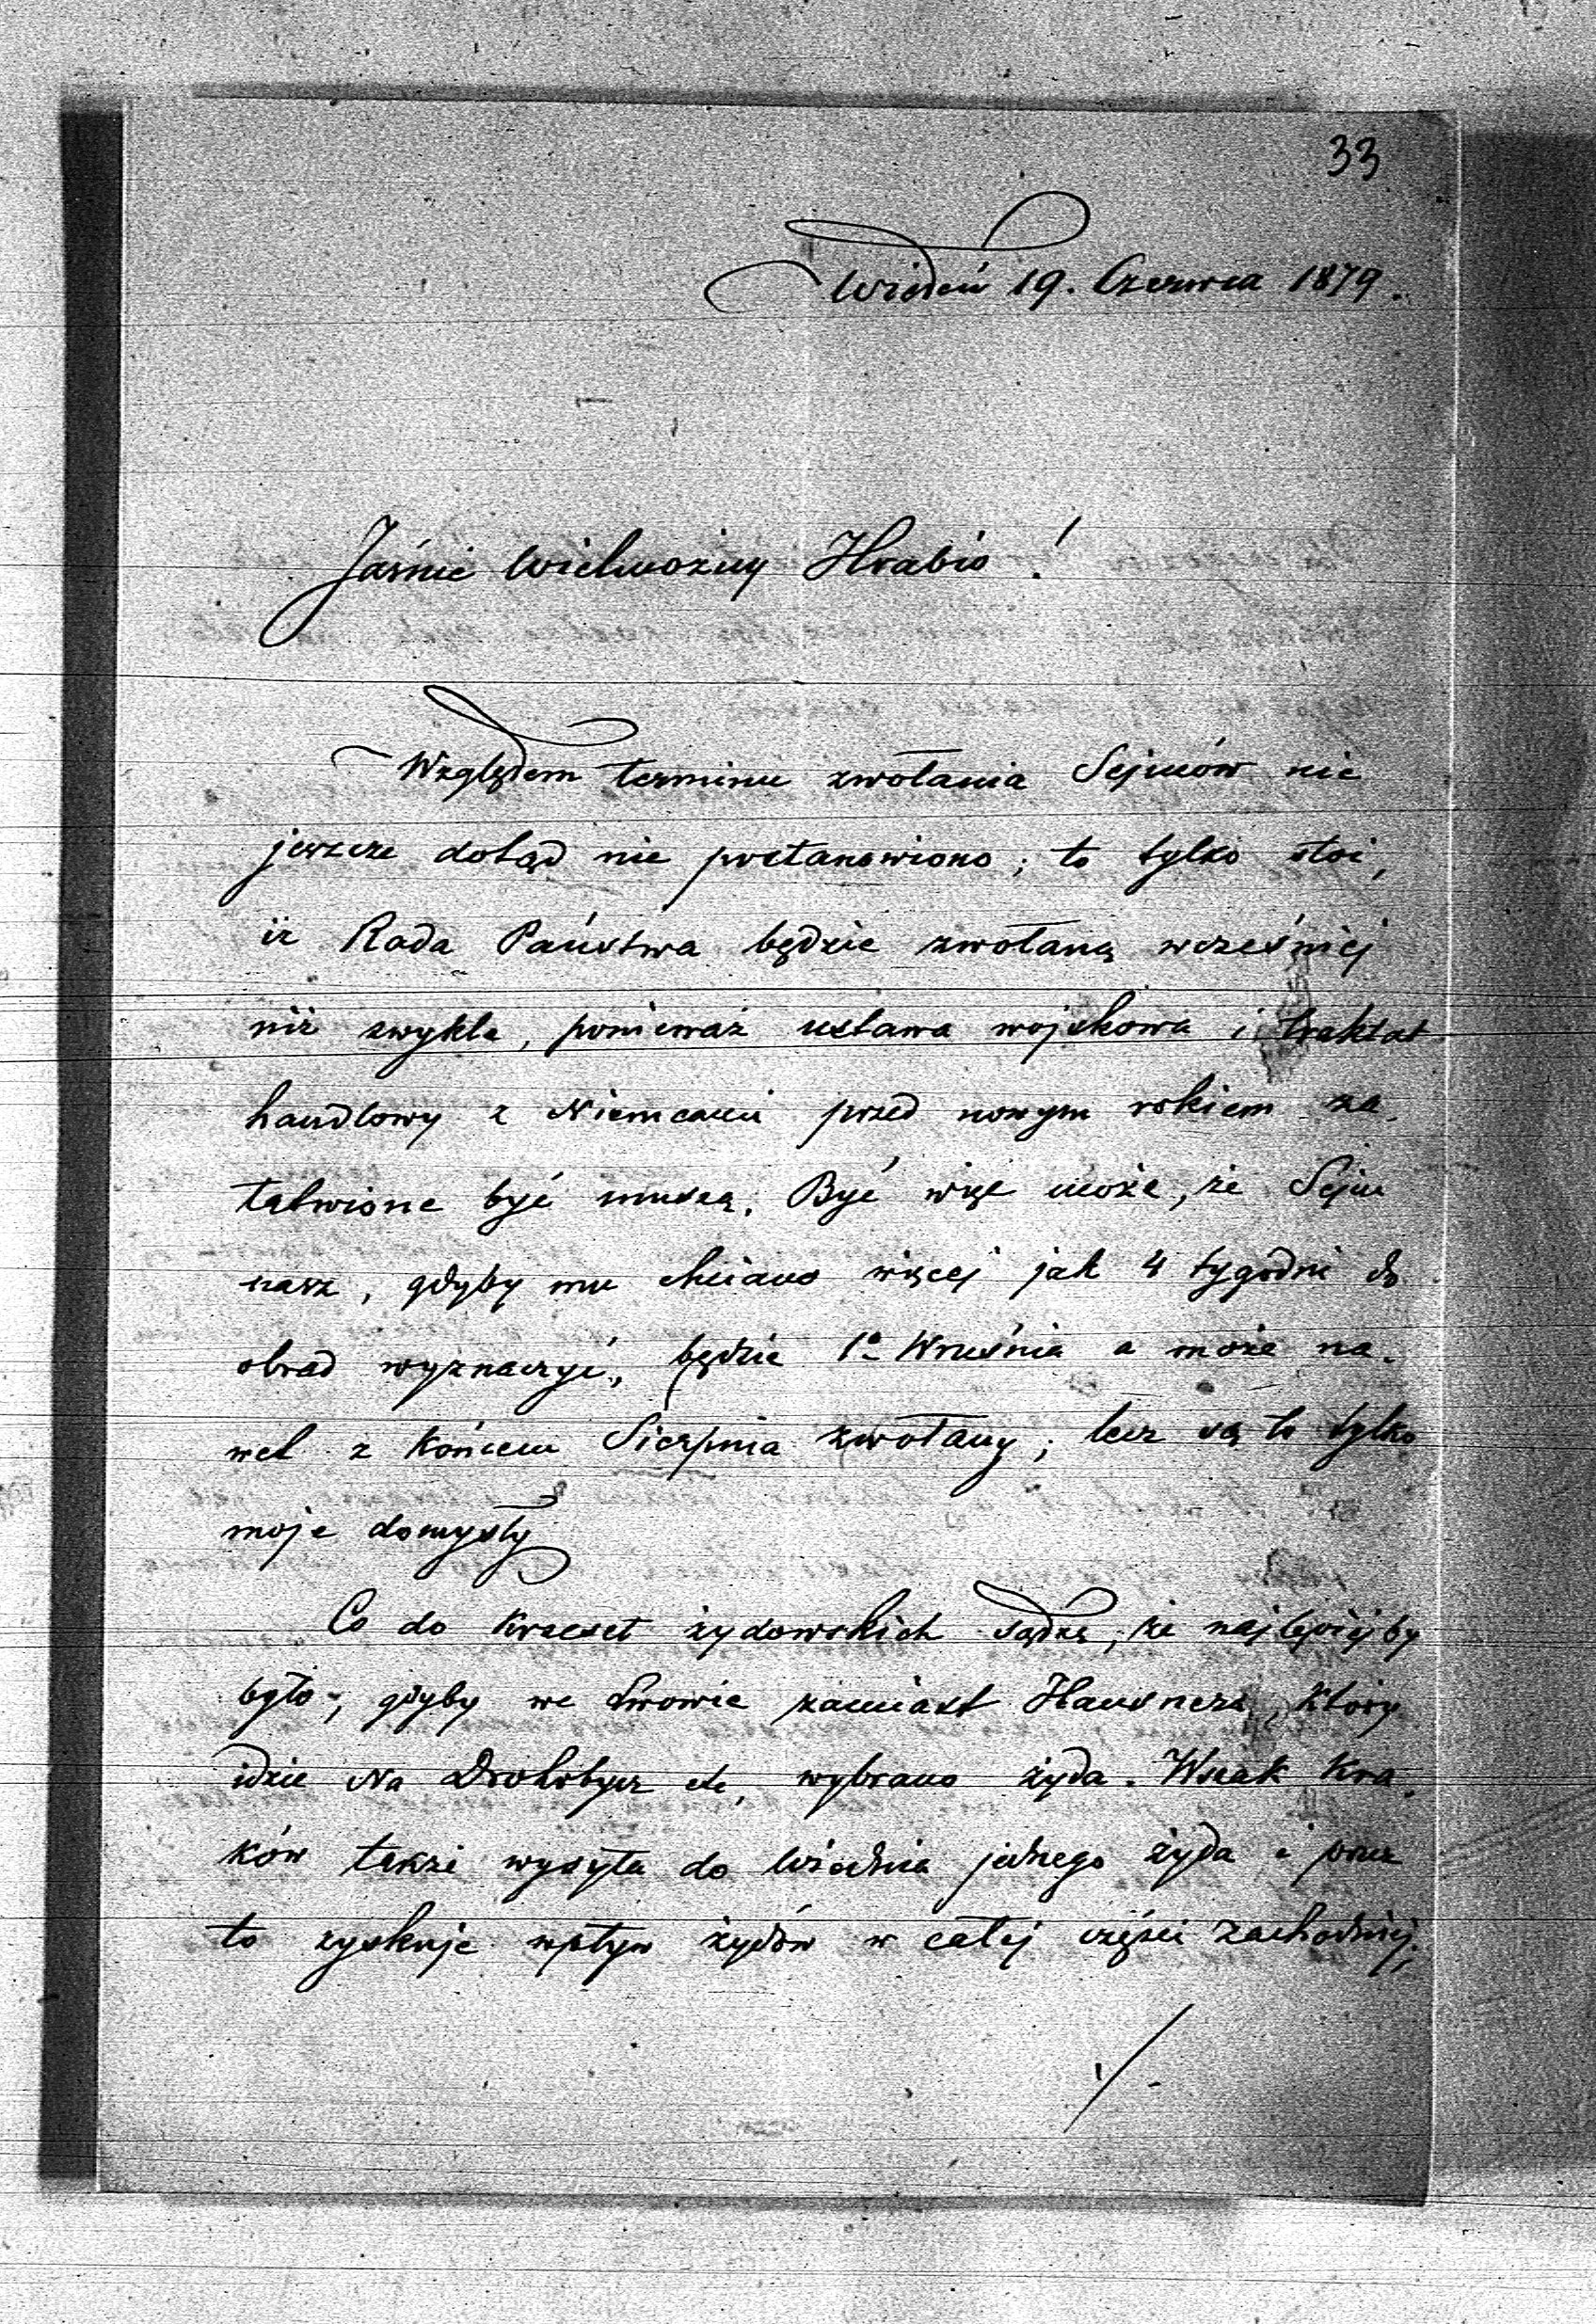 33
Wiedeń 19. Czerwca 1879.
Jaśnie Wielmożny Hrabio!
Względem terminu zwołania Sejmów nic
jeszcze dotąd nie postanowiono; to tylko stoi,
iż Rada Państwa będzie zwołaną wcześniej
niż zwykle, ponieważ ustawa wojskowa i traktat
handlowy z Niemcami przed nowym rokiem za-
łatwione być muszą. Być więc może, że Sejm
nasz, gdyby mu chciano więcej jak 4 tygodni do
obrad wyznaczyć, będzie 1o Września a może na-
wet z końcem Sierpnia zwołany; lecz są to tylko
moje domysły
Co do krzeseł żydowskich sądzę, że najlepiejby
było, gdyby we Lwowie zamiast Hausnera, który
idzie na Drohobycz etc, wybrano żyda. Wszak Kra-
ków także wysyła do Wiednia jednego żyda i przez
to zyskuje wpływ żydów w całej części zachodniej;
./.